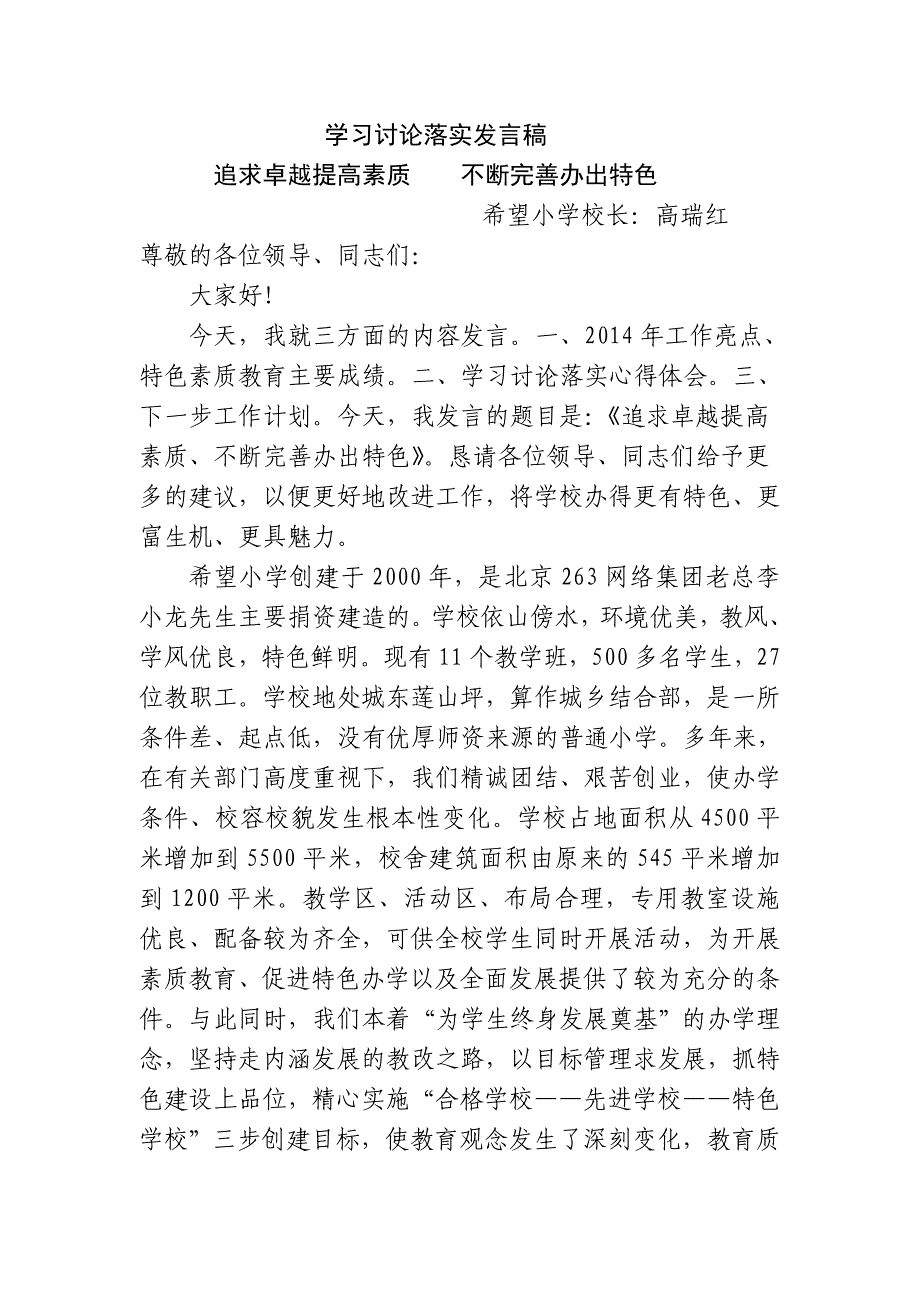 学习讨论落实发言稿
追求卓越提高素质 不断完善办出特色
希望小学校长：高瑞红
尊敬的各位领导、同志们：
大家好！
今天，我就三方面的内容发言。一、2014年工作亮点、
特色素质教育主要成绩。二、学习讨论落实心得体会。三、
下一步工作计划。今天，我发言的题目是：《追求卓越提高
素质、不断完善办出特色》。恳请各位领导、同志们给予更
多的建议，以便更好地改进工作，将学校办得更有特色、更
富生机、更具魅力。
希望小学创建于2000年，是北京263网络集团老总李
小龙先生主要捐资建造的。学校依山傍水，环境优美，教风、
学风优良，特色鲜明。现有11个教学班，500多名学生，27
位教职工。学校地处城东莲山坪，算作城乡结合部，是一所
条件差、起点低，没有优厚师资来源的普通小学。多年来，
在有关部门高度重视下，我们精诚团结、艰苦创业，使办学
条件、校容校貌发生根本性变化。学校占地面积从4500平
米增加到5500平米，校舍建筑面积由原来的545平米增加
到1200平米。教学区、活动区、布局合理，专用教室设施
优良、配备较为齐全，可供全校学生同时开展活动，为开展
素质教育、促进特色办学以及全面发展提供了较为充分的条
件。与此同时，我们本着“为学生终身发展奠基”的办学理
念，坚持走内涵发展的教改之路，以目标管理求发展，抓特
色建设上品位，精心实施“合格学校——先进学校——特色
学校”三步创建目标，使教育观念发生了深刻变化，教育质